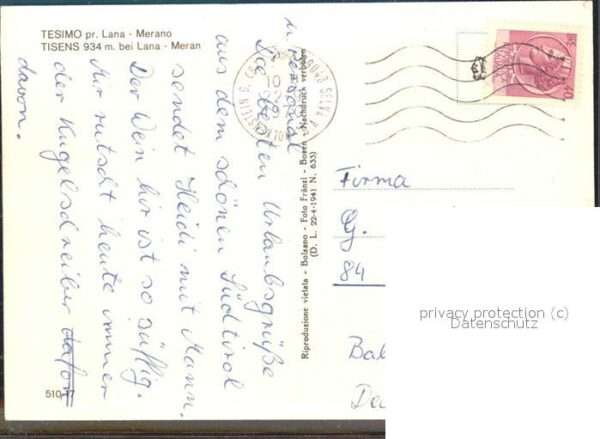 TESIMO pr. Lana - Merano
TISENS 934 m. bei Lana - Meran
u. Personal
Die besten Urlaubsgrüße
aus dem schönen Südtirol
sendet Heidi mit Mann.
Der Wein hir ist so süffig.
Mir rutscht heute immer
der Kugelschreiber dafon
davon.
510/17
Riproduzione vietata - Bolzano - Foto Fränzl - Bozen - Nachdruck verboten
(D. L. 22-4-1941 N. 633)
Firma
Gg.
84
Bal
De
privacy protection (c)
Datenschutz